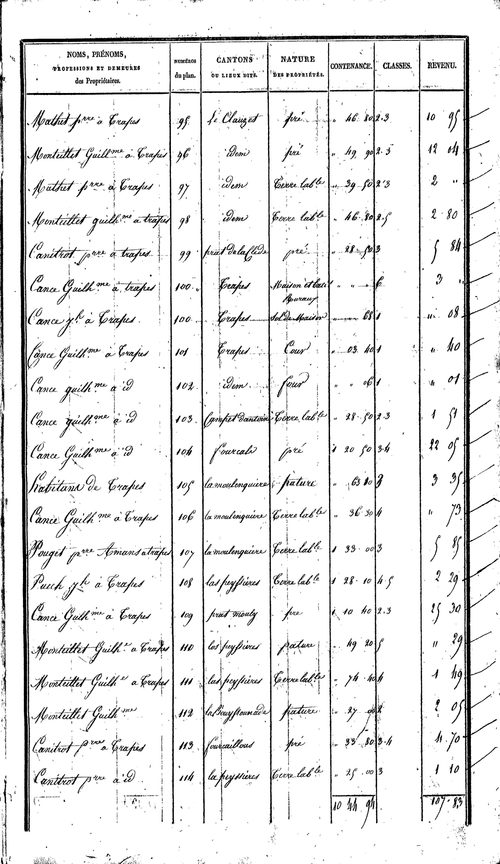 NOMS, PRÉNOMS, PROFESSIONS ET DEMEURES des Propriétaires. NUMÉROS du plan. CANTONS OU LIEUX DITS. NATURE DES PROPRIÉTÉS. CONTENANCE. CLASSES. REVENU.
Mathet pre à Trapes 95 Le Clauzet pré " 46 80 2.3 10 95
Monteillet Guilhme à Trapes 96 idem pré " 49 90 2.3 12 04
Mathet pre à Trapes 97 idem Terre lable " 39 50 2.3 2 "
Monteillet guilhme à trapes 98 idem Terre lable " 46 80 2.5 2 80
Canitrot pre à trapes 99 prat de la Clède pré " 28 50 3 5 84
Cance Guilhme à trapes 100 Trapes Maison et bat. Ruraux " " " 6 3 "
Cance jh à Trapes 100 Trapes Sol de Maison " " 68 1 " 08
Cance Guilhme à Trapes 101 Trapes Cour " 03 40 1 " 40
Cance guilhme à id 102 idem four " " 06 1 " 01
Cance guilhme à id 103 Terre lable " 28 50 2.3 1 51
Cance Guilhme à id 104 fourcals pré 1 20 50 3.4 22 05
habitans de Trapes 105 la moulenquiere pature " 63 80 3 35
Cance Guilhme à Trapes 106 la moulenquiere Terre lable " 36 30 4 " 73
Pouget pre Amans à trapes 107 la moulenquiere Terre lable 1 33 00 3 5 85
Puech jh à Trapes 108 las peyssieres Terre lable 1 28 10 4.5 2 29
Cance Guilhme à Trapes 109 prat mouly pré 1 10 40 2.3 25 30
Monteillet Guilhe à Trapes 110 las peyssieres pature " 49 20 5 " 29
Monteillet Guilhe à Trapes 111 las peyssieres Terre lable " 74 40 4 1 49
Monteillet Guilhme 112 pature " 27 00 2 2 05
Canitrot pre à Trapes 113 fourcaillous pré " 33 80 3.4 4 70
Canitrot pre à id 114 la peyssieres Terre lable " 25 00 3 1 10
10 44 94 107.83